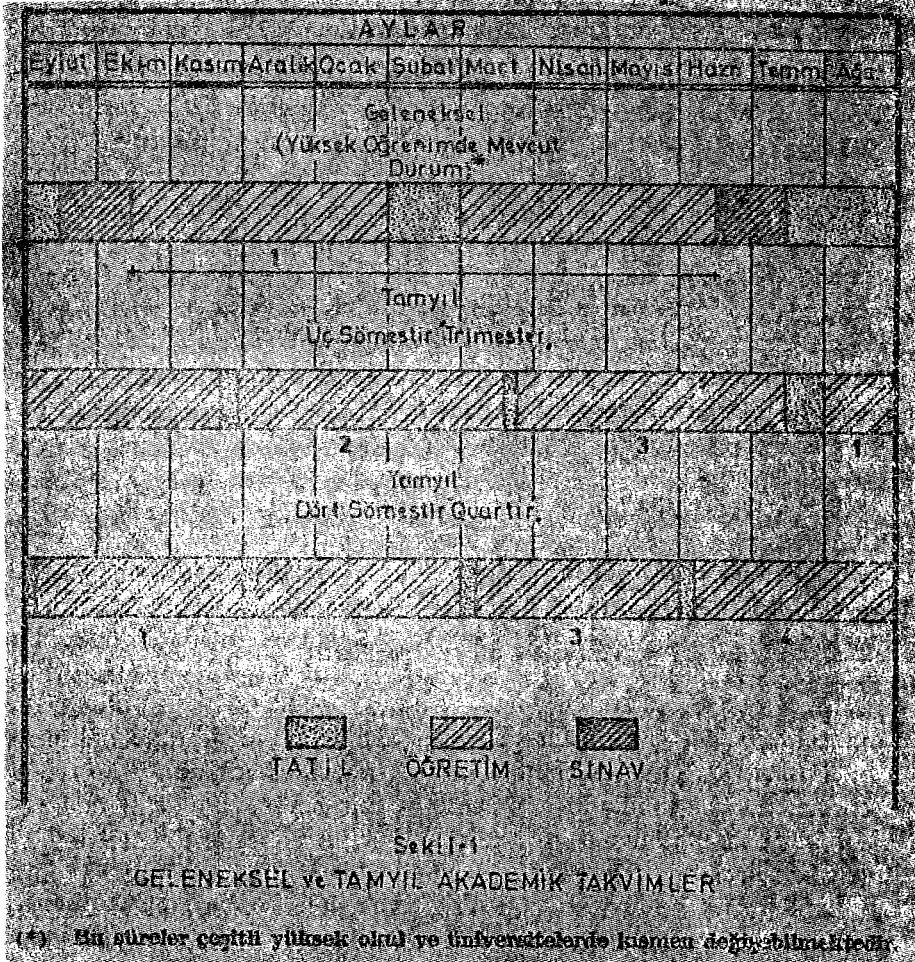 AYLAR
Eylül Ekim Kasım Aralık Ocak Şubat Mart Nisan Mayıs Hazn Temm Ağa
Geleneksel
(Yüksek Öğrenimde Mevcut
Durum)*
1
Tamyıl
Üç Sömestir Trimester.
2 3 1
Tamyıl
Dört Sömestir Quartır.
1 3 4
TATİL ÖĞRETİM SINAV
GELENEKSEL ve TAMYIL AKADEMİK TAKVİMLER
(*) Bu süreler çeşitli yüksek okul ve üniversitelerde kısmen değişebilmektedir.